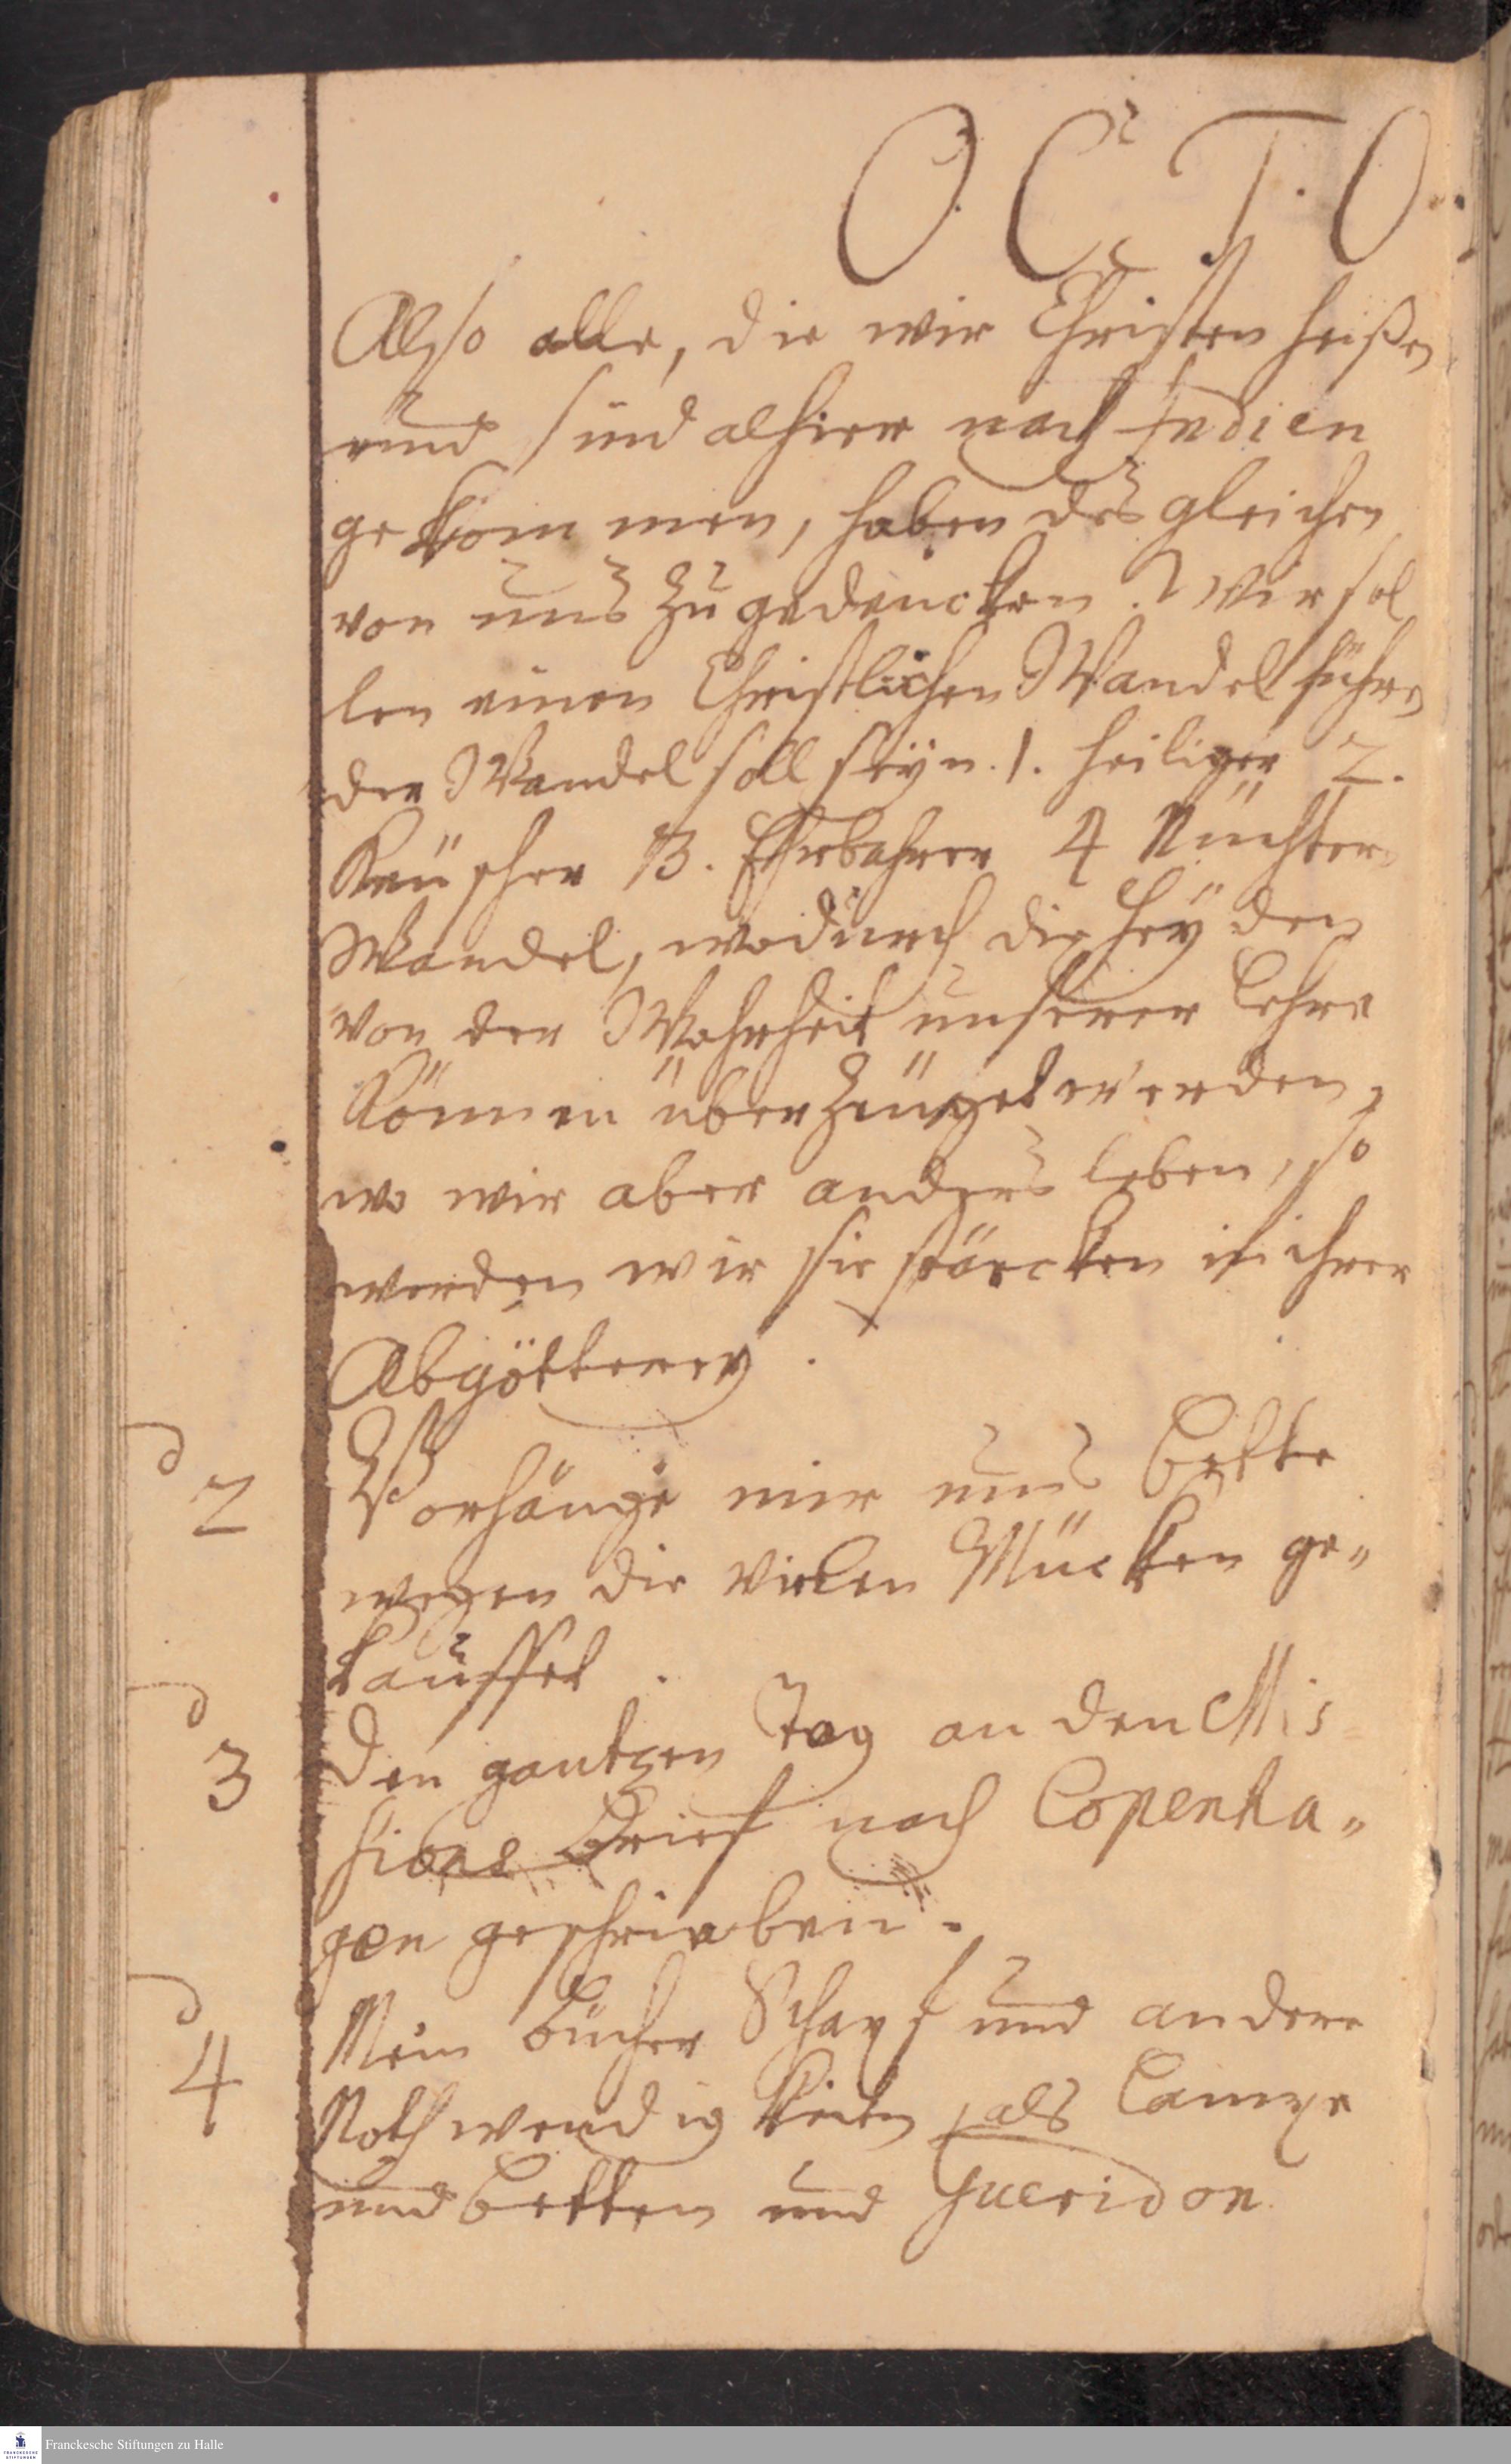 O C T. O.
Also alle, die wir Christen heißen
und sind alhier nach Indien
gekommen, haben desgleichen
von uns zu gedencken. Wir sol
len einen Christlichen Wandel führen
der Wandel soll seÿn. 1. heiliger 2.
Keüscher 3. Ehrbahrer 4 Nüchter
Wandel, wodurch die Heÿden
von der Wahrheit unserer Lehre
können überzeüget werden,
wo wir aber anders leben, so
werden wir sie stärcken in ihrer
Abgötterey.
d
2
Vorhänge mir ums Bette
wegen die vielen Mücken ge"
kauffet.
d
3
Den gantzen Tag an den Mis
sions Brief nach Copenha"
gen geschrieben.
d
4
Mein bücher Schapf und andere
Nothwendigkeiten, als Lampe
und Betten und Gueridon
Franckesche Stiftungen zu Halle